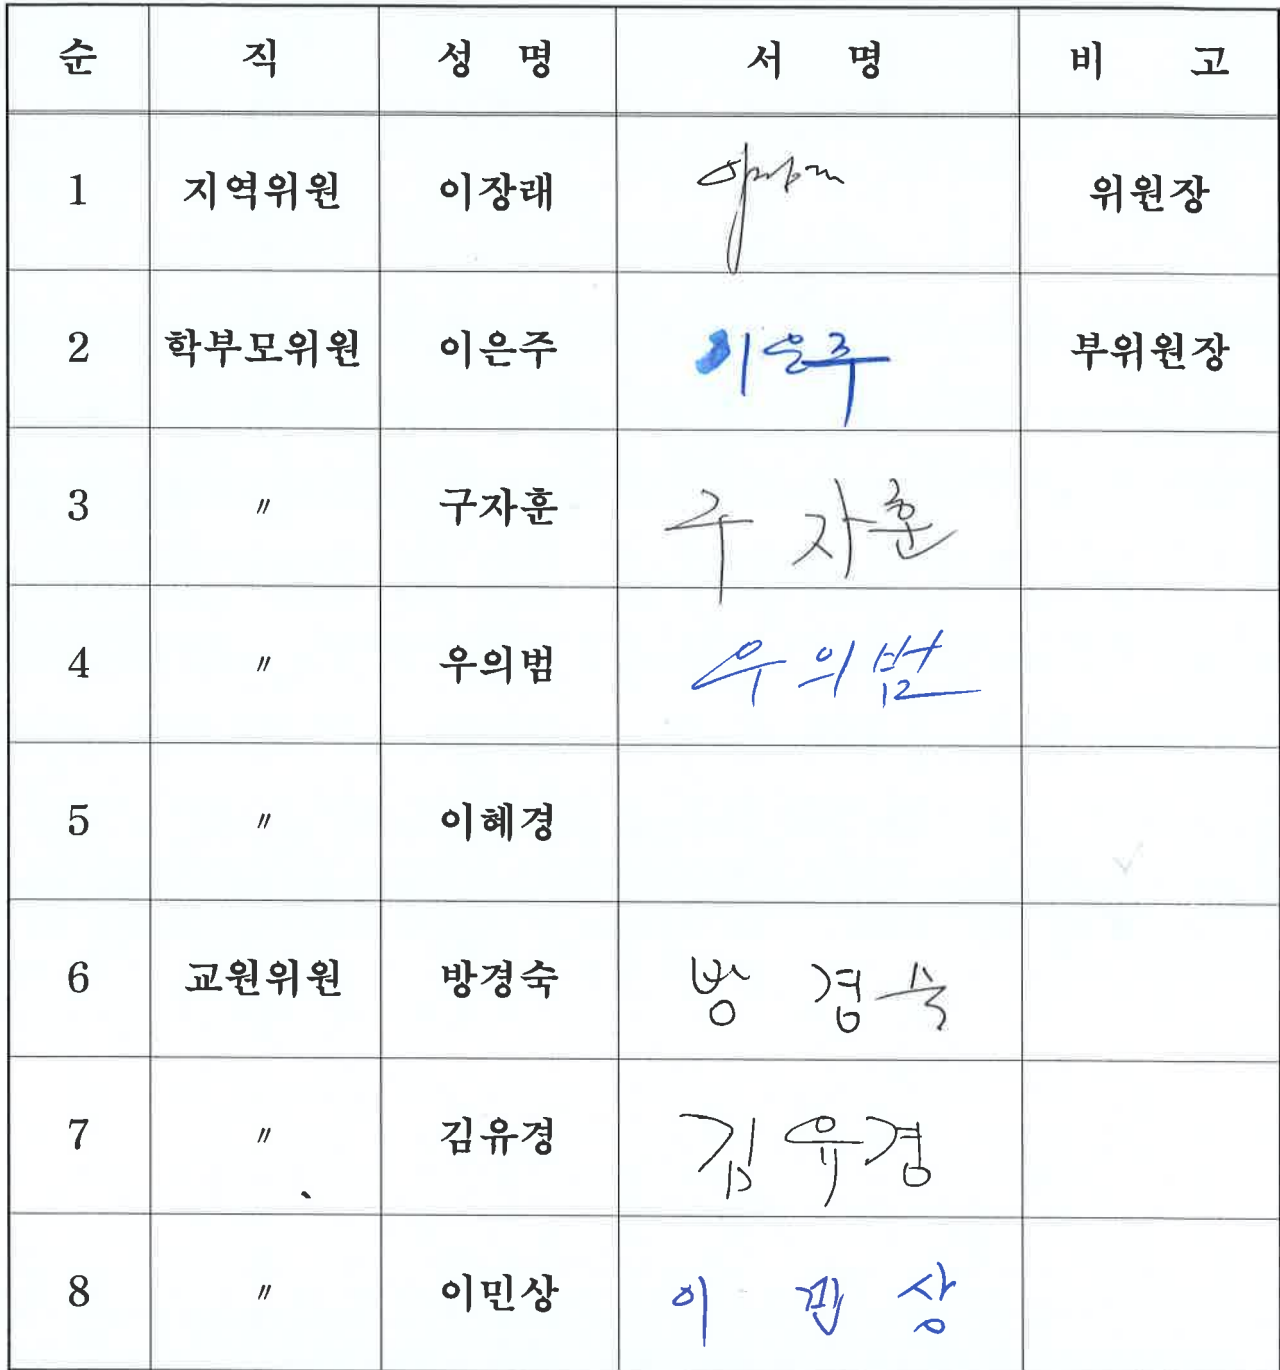 순 직 성 명 서 명 비 고
1 지역위원 이장래 위원장
2 학부모위원 이은주 이은주 부위원장
3 〃 구자훈 구자훈
4 〃 우의범 우의범
5 〃 이혜경
6 교원위원 방경숙 방경숙
7 〃 김유경 김유경
8 〃 이민상 이민상